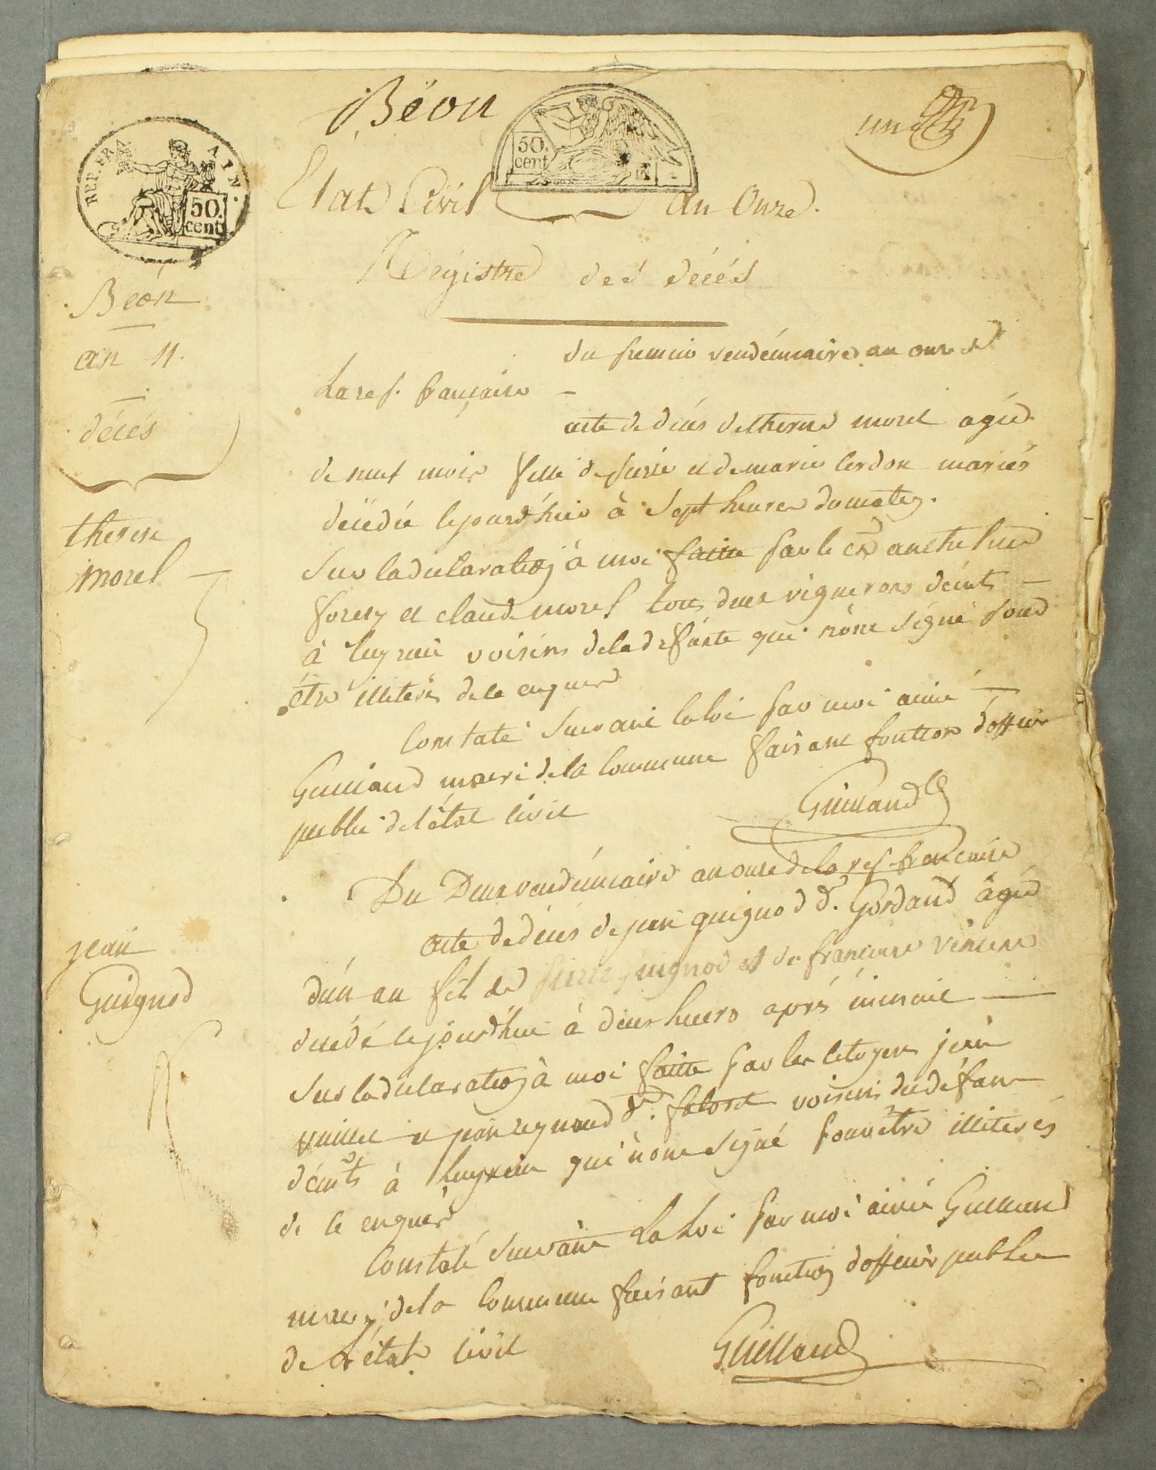 Béon
un
REP. FRA. AIN.
50. cent
50. cent
Etat Civil an Onze.
Régistre des décés
Béon
an 11.
décés
du premier vendémiaire an onze de
La rep. française
acte de décés de therese morel agée
de neuf mois fille de pierre et de marie cerdon mariés
décédée cejourd'hui à sept heures du matin.
therese
morel
Sur la declaration à moi faitte par le cen anthelme
forest et claude morel tous deux vignerons deints
à luyrieu voisins de la defunte qui n'ont signé pour
être illiterés de ce enquis
Constaté suivant la loi par moi aimé
Guilland maire de la commune faisant fonction d'officier
public de l'état civil
Guilland
Du Deux vendémiaire an onze de la rep. francaise
acte de décés de jean guignod dt. Gordand agé
jean
Guignod
d'un an fils de pierre guignod et de francoise
décédé cejourd'hui à deux heures aprés minuit
Sur la declaration à moi faitte par les citoyens jean
et jean reynaud dt. voisins du défunt
deints à luyrieu qui n'ont signé pour être illiterés
de ce enquis
Constaté suivant la Loi par moi aimé Guilland
maire de la commune faisant fonction d'officier public
de l'état civil
Guilland